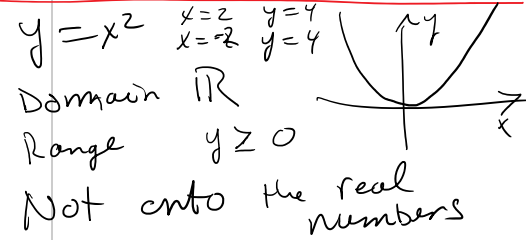 y = x² x = 2 y = 4
x = -2 y = 4
y
x
Domain ℝ
Range y ≥ 0
Not onto the real
numbers